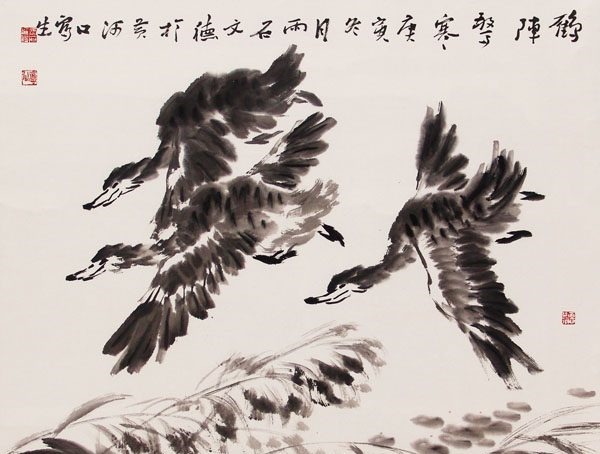 陣驚寒庚寅冬月雨石文德於黄河口寫生